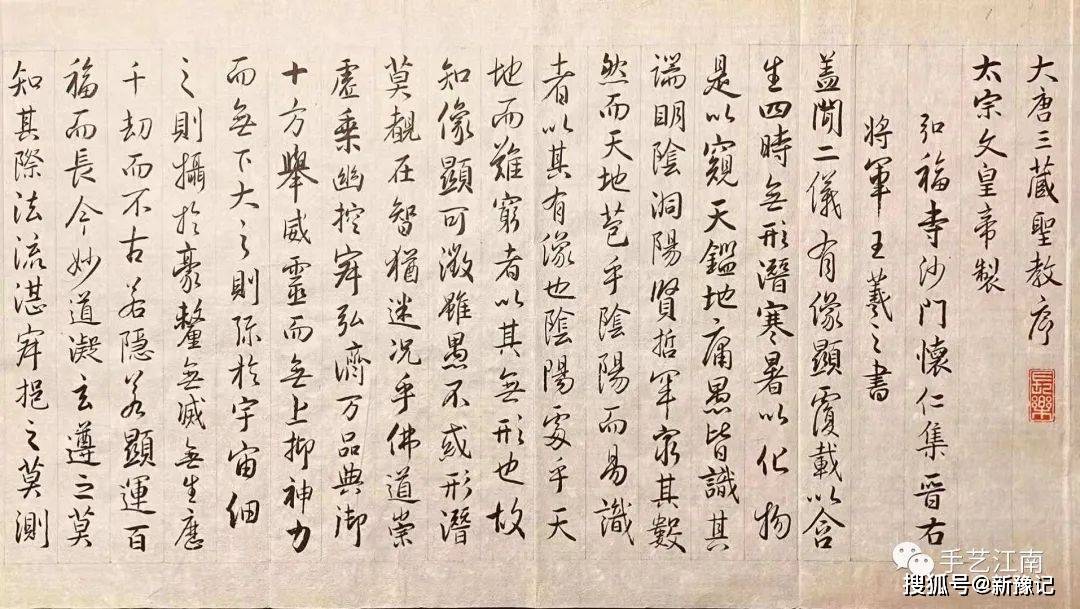 大唐三藏聖教序
太宗文皇帝製
弘福寺沙門懷仁集晉右
將軍王羲之書
蓋聞二儀有像顯覆載以含
生四時無形潛寒暑以化物
是以窺天鑑地庸愚皆識其
端明陰洞陽賢哲罕窮其數
然而天地苞乎陰陽而易識
者以其有像也陰陽處乎天
地而難窮者以其無形也故
知像顯可徵雖愚不惑形潛
莫覩在智猶迷況乎佛道崇
虛乘幽控寂弘濟万品典御
十方舉威靈而無上抑神力
而無下大之則彌於宇宙細
之則攝於豪釐無滅無生歷
千劫而不古若隱若顯運百
福而長今妙道凝玄遵之莫
知其際法流湛寂挹之莫測
長樂
手艺江南
搜狐号@新豫记